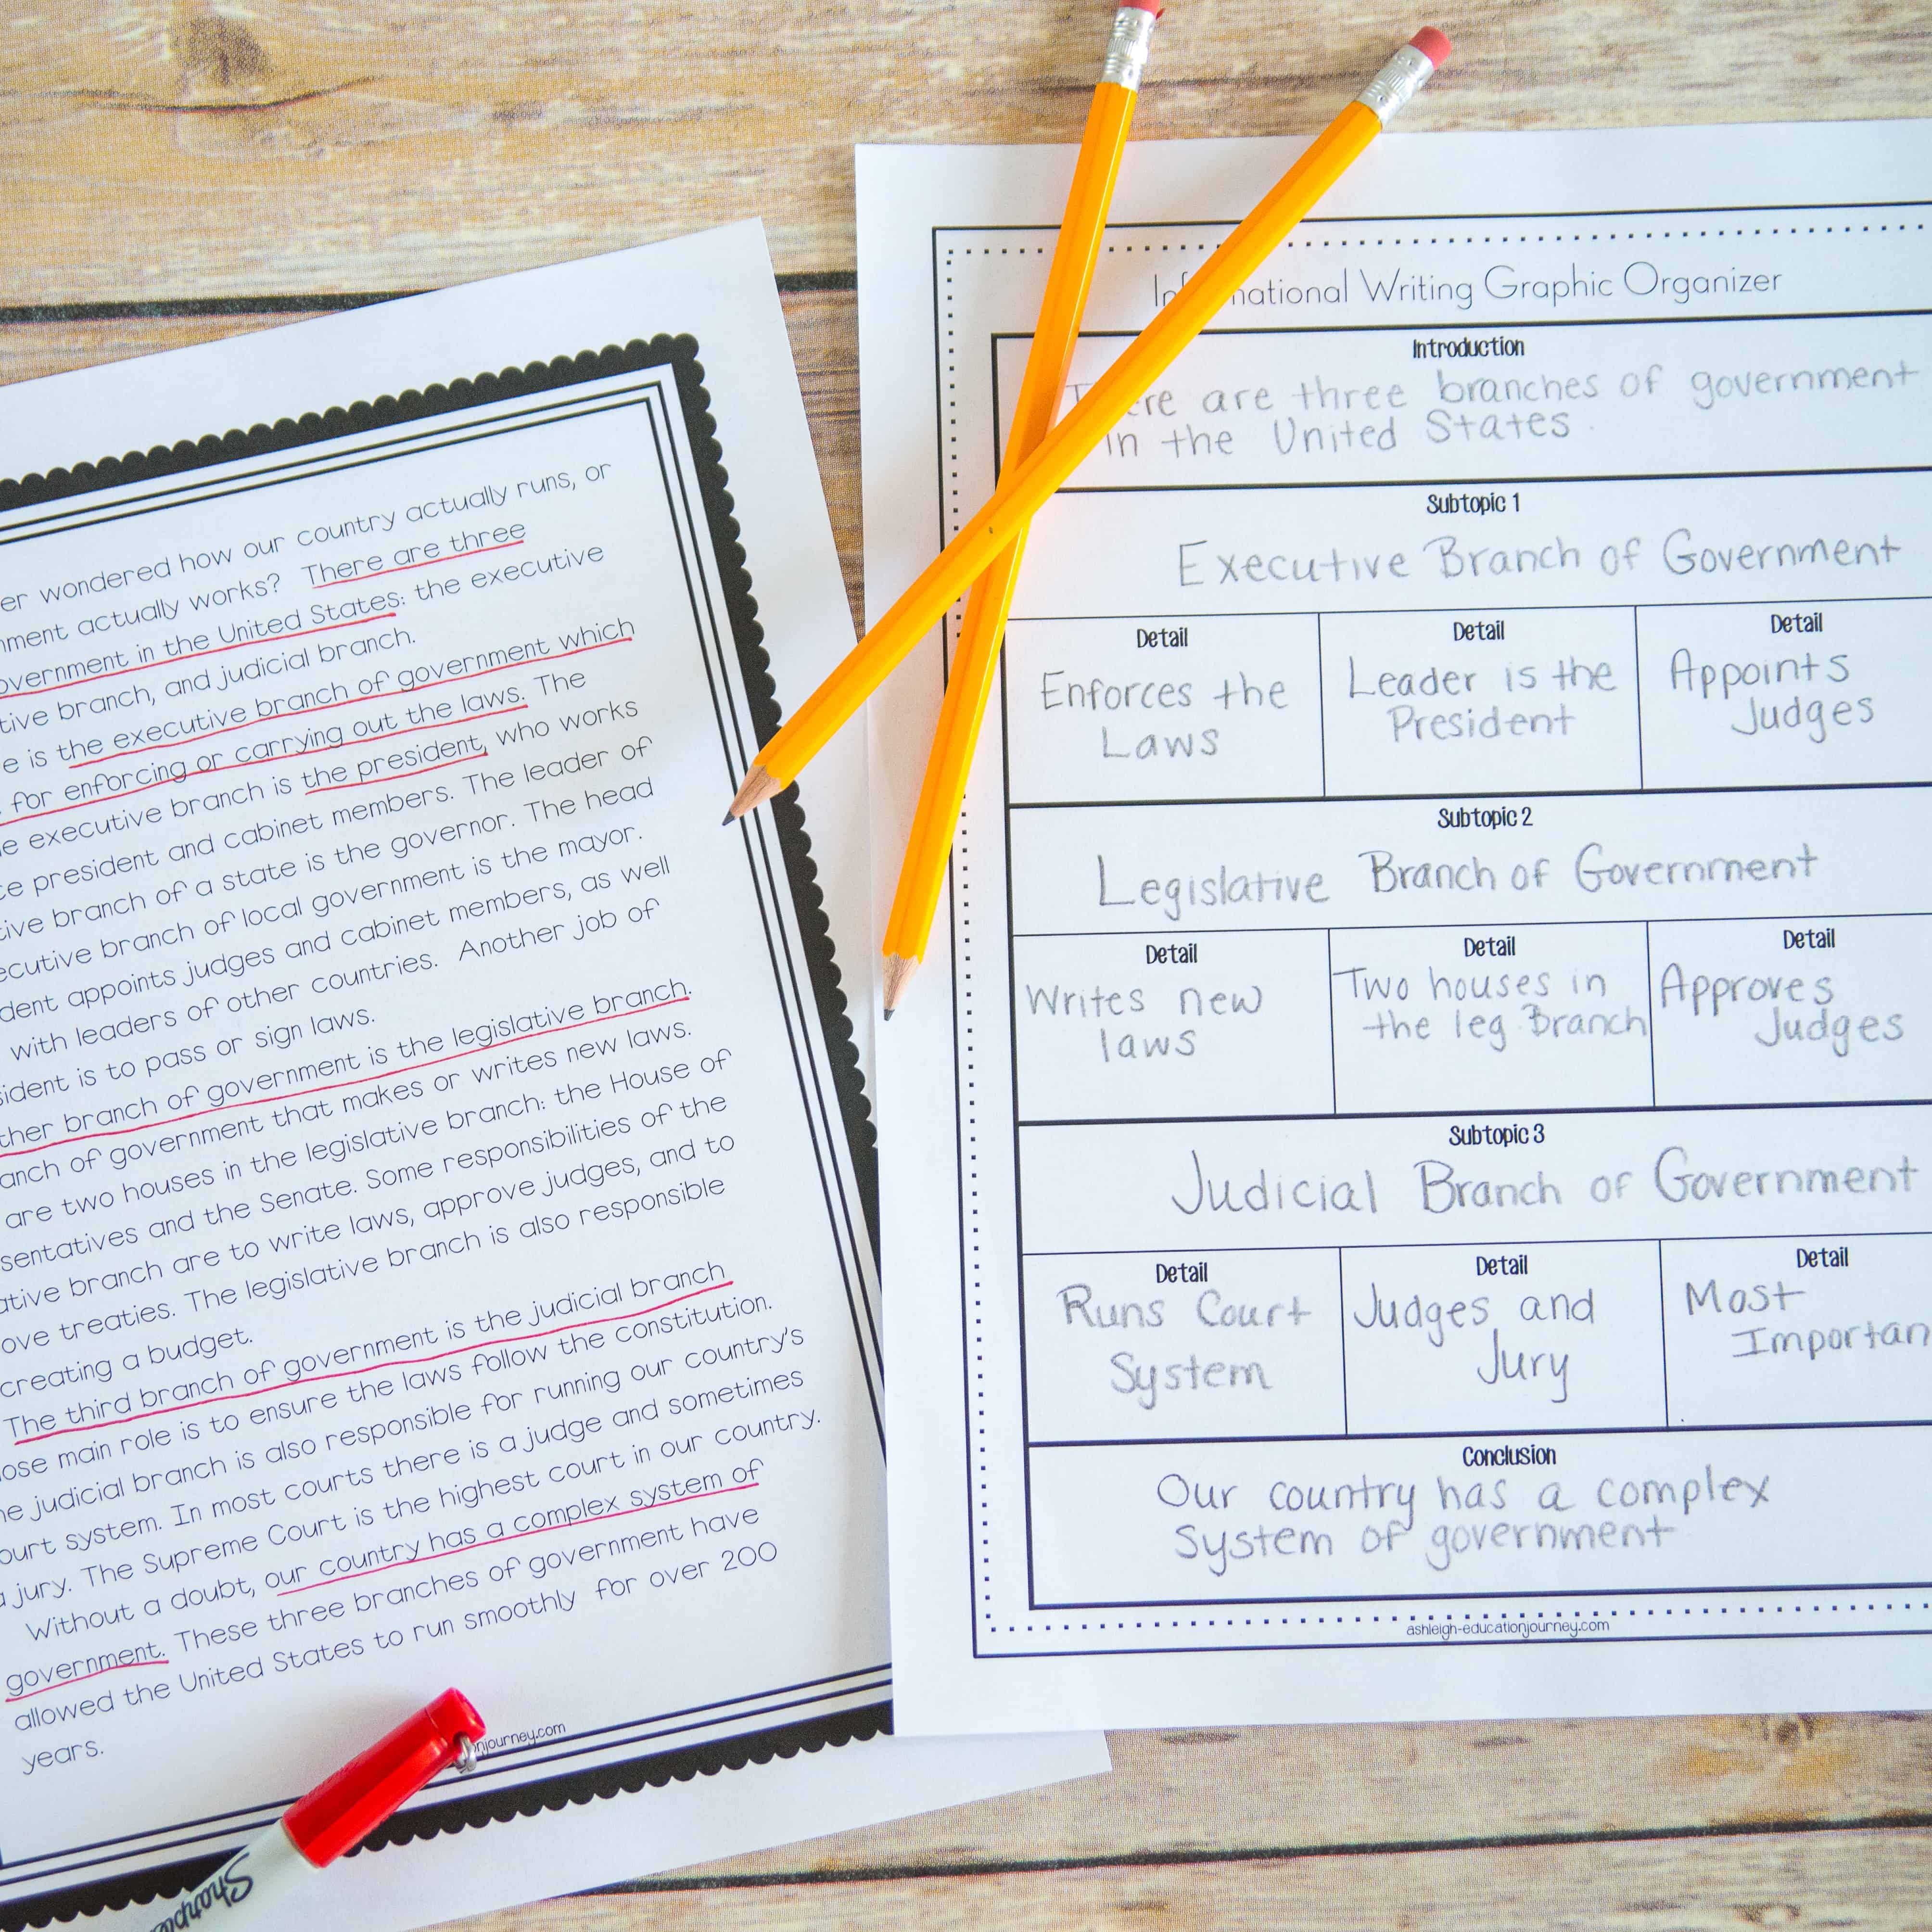 er wondered how our country actually runs, or
nment actually works? There are three
overnment in the United States: the executive
tive branch, and judicial branch.
e is the executive branch of government which
for enforcing or carrying out the laws. The
e executive branch is the president, who works
ce president and cabinet members. The leader of
tive branch of a state is the governor. The head
ecutive branch of local government is the mayor.
dent appoints judges and cabinet members, as well
with leaders of other countries. Another job of
sident is to pass or sign laws.
ther branch of government is the legislative branch.
anch of government that makes or writes new laws.
are two houses in the legislative branch: the House of
sentatives and the Senate. Some responsibilities of the
ative branch are to write laws, approve judges, and to
ove treaties. The legislative branch is also responsible
creating a budget.
The third branch of government is the judicial branch
ose main role is to ensure the laws follow the constitution.
he judicial branch is also responsible for running our country's
ourt system. In most courts there is a judge and sometimes
a jury. The Supreme Court is the highest court in our country.
Without a doubt, our country has a complex system of
government. These three branches of government have
allowed the United States to run smoothly for over 200
years.
njourney.com
Sharpie
Writing Graphic Organizer
Introduction
are three branches of government
in the United States
Subtopic 1
Executive Branch of Government
Detail
Enforces the
Laws
Detail
Leader is the
President
Detail
Appoints
Judges
Subtopic 2
Legislative Branch of Government
Detail
Writes new
laws
Detail
Two houses in
the leg Branch
Detail
Approves
Judges
Subtopic 3
Judicial Branch of Government
Detail
Runs Court
System
Detail
Judges and
Jury
Detail
Most
Importan
Conclusion
Our country has a complex
System of government
ashleigh-educationjourney.com